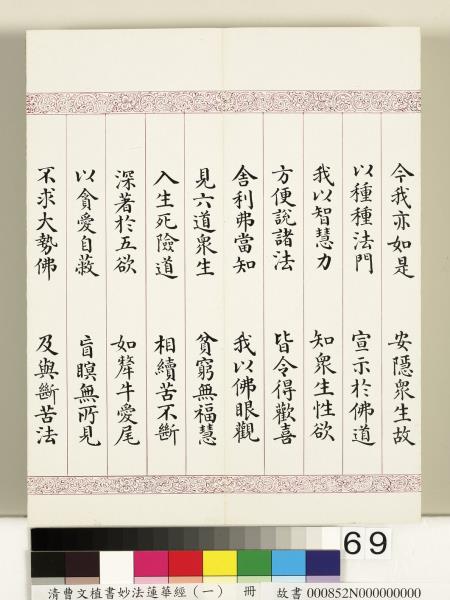 今我亦如是 安隱衆生故
以種種法門 宣示於佛道
我以智慧力 知衆生性欲
方便說諸法 皆令得歡喜
舍利弗當知 我以佛眼觀
見六道衆生 貧窮無福慧
入生死險道 相續苦不斷
深著於五欲 如犛牛愛尾
以貪愛自蔽 盲瞑無所見
不求大勢佛 及與斷苦法
69
清曹文植書妙法蓮華經（一） 冊 故書 000852N000000000